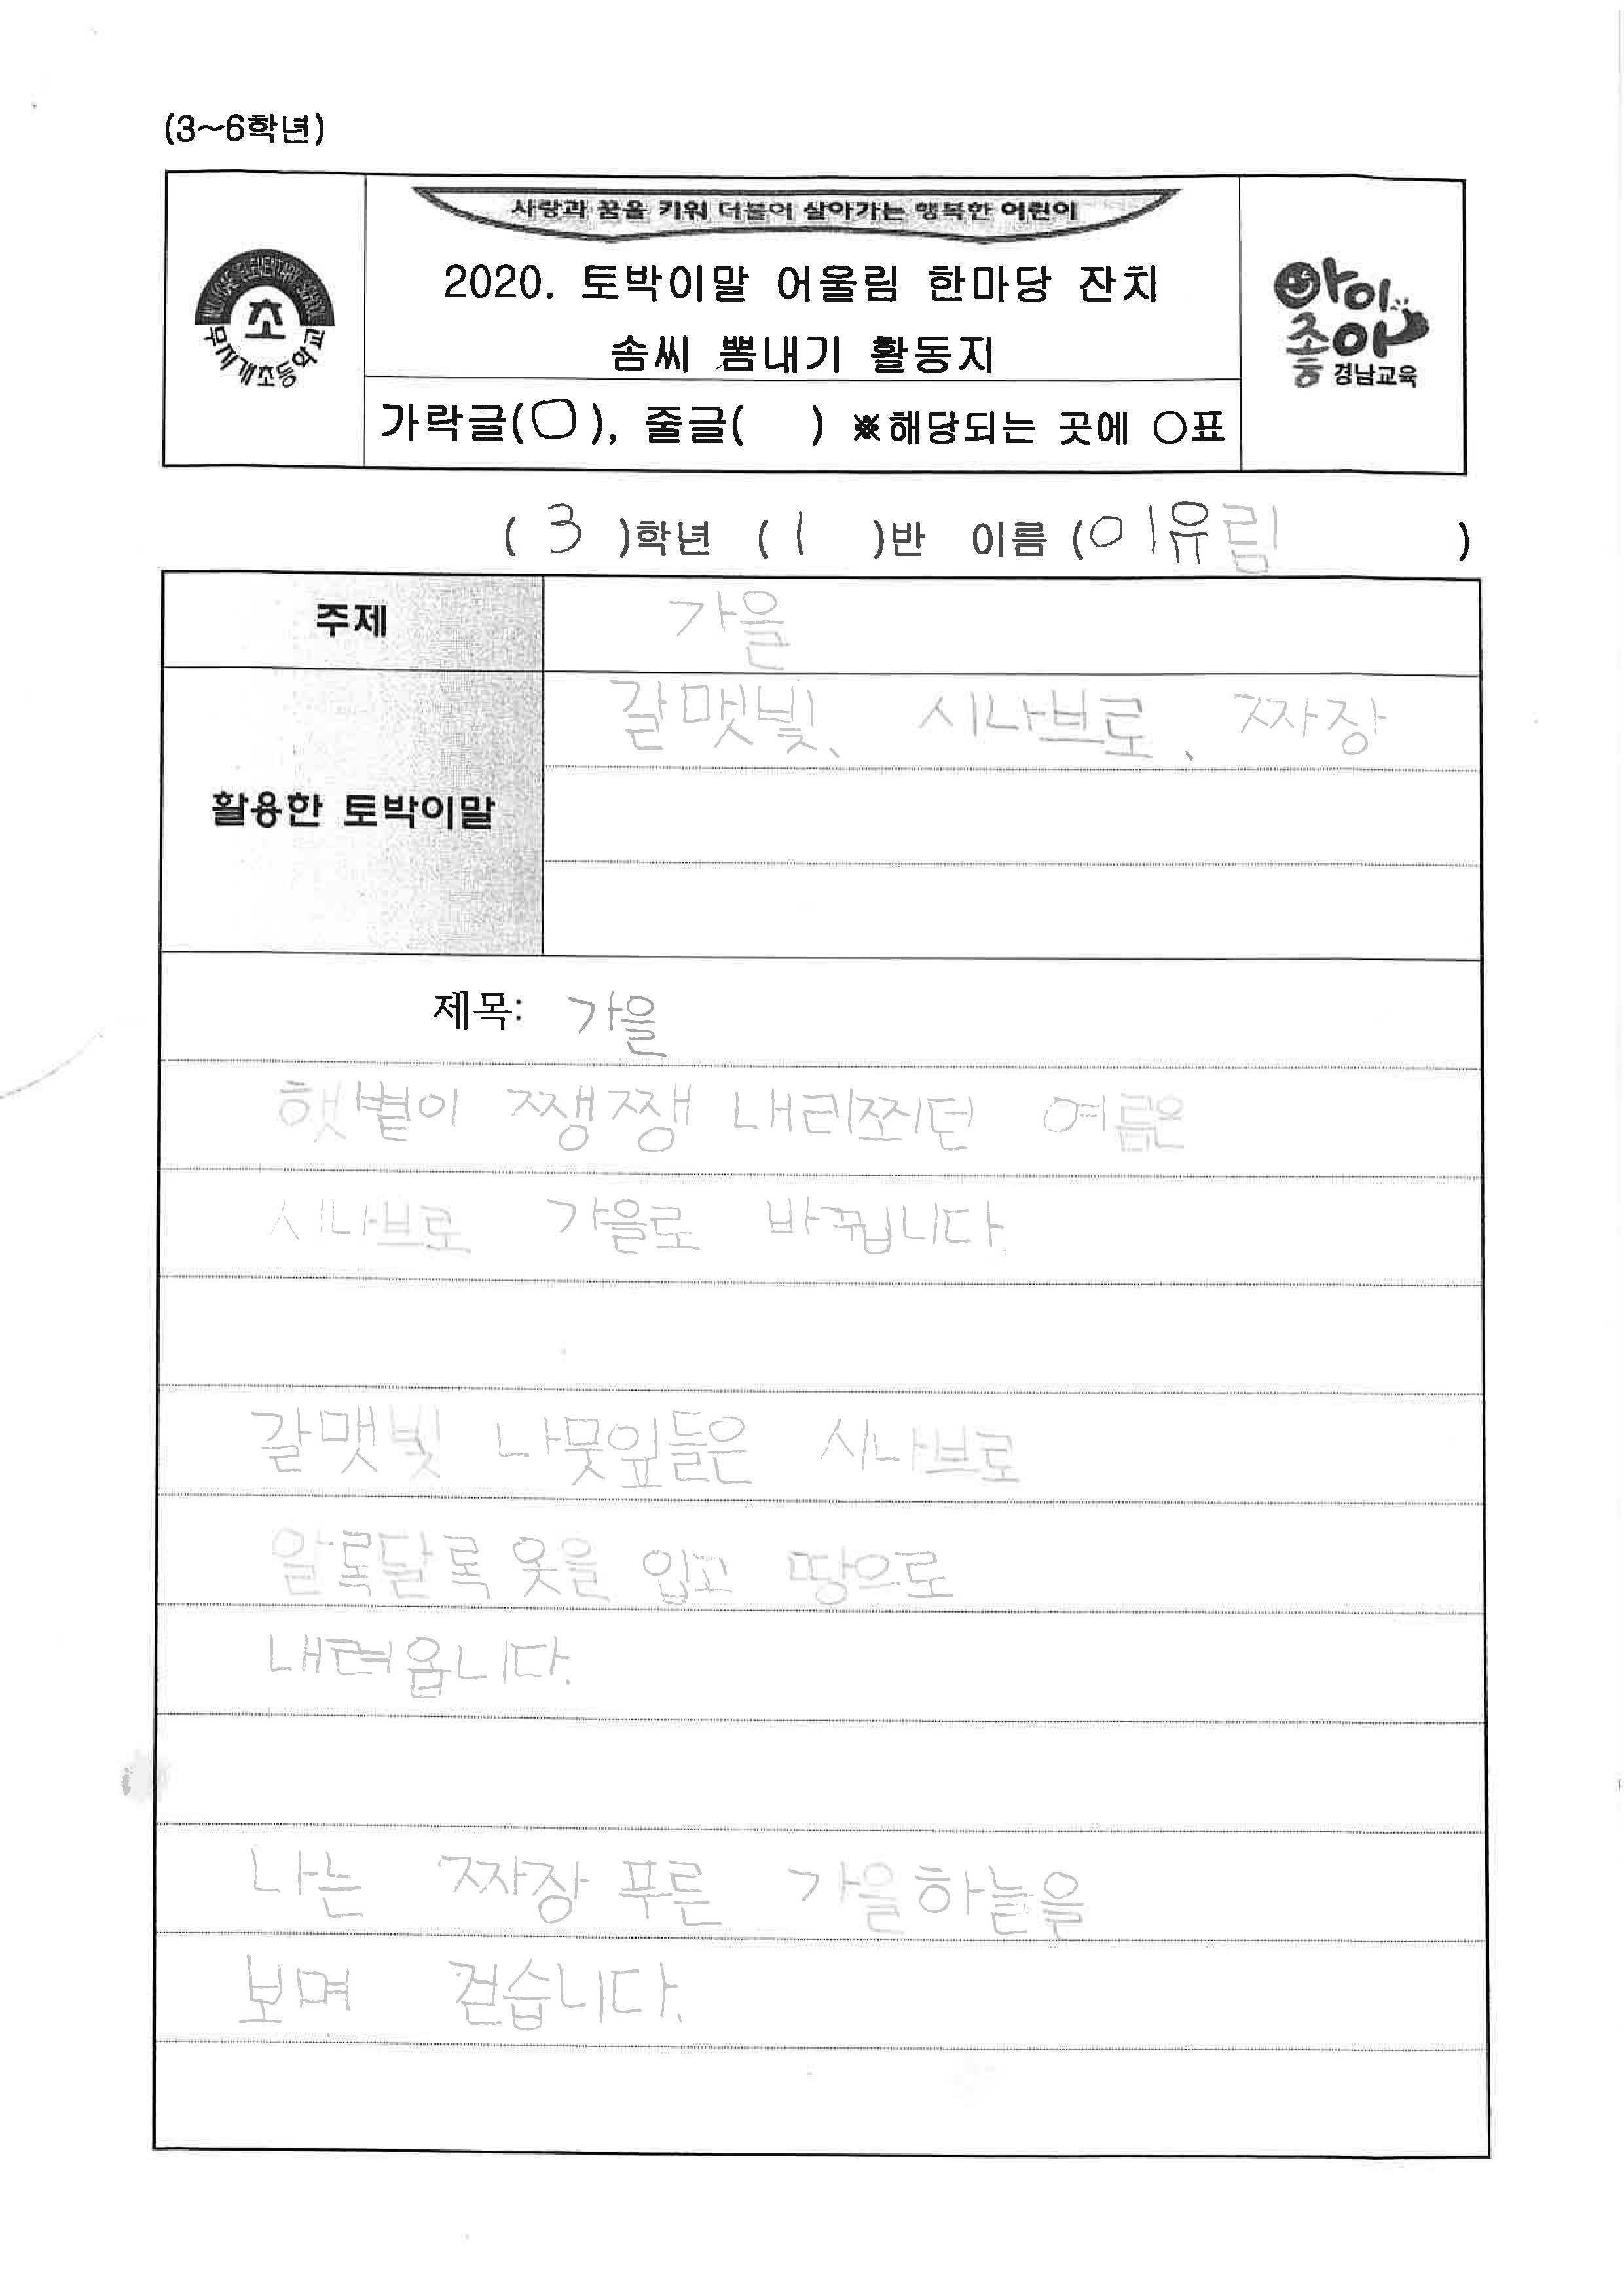 (3~6학년)
사랑과 꿈을 키워 더불어 살아가는 행복한 어린이
2020. 토박이말 어울림 한마당 잔치
솜씨 뽐내기 활동지
가락글(○), 줄글( ) ※해당되는 곳에 ○표
초
무지개초등학교
아이
좋아
경남교육
( 3 )학년 ( 1 )반 이름 (이유림 )
주제 가을
활용한 토박이말 갈맷빛, 시나브로, 짜장
제목: 가을
햇볕이 쨍쨍 내리쬐던 여름은
시나브로 가을로 바뀝니다.
갈맷빛 나뭇잎들은 시나브로
알록달록 옷을 입고 땅으로
내려옵니다.
나는 짜장 푸른 가을하늘을
보며 걷습니다.